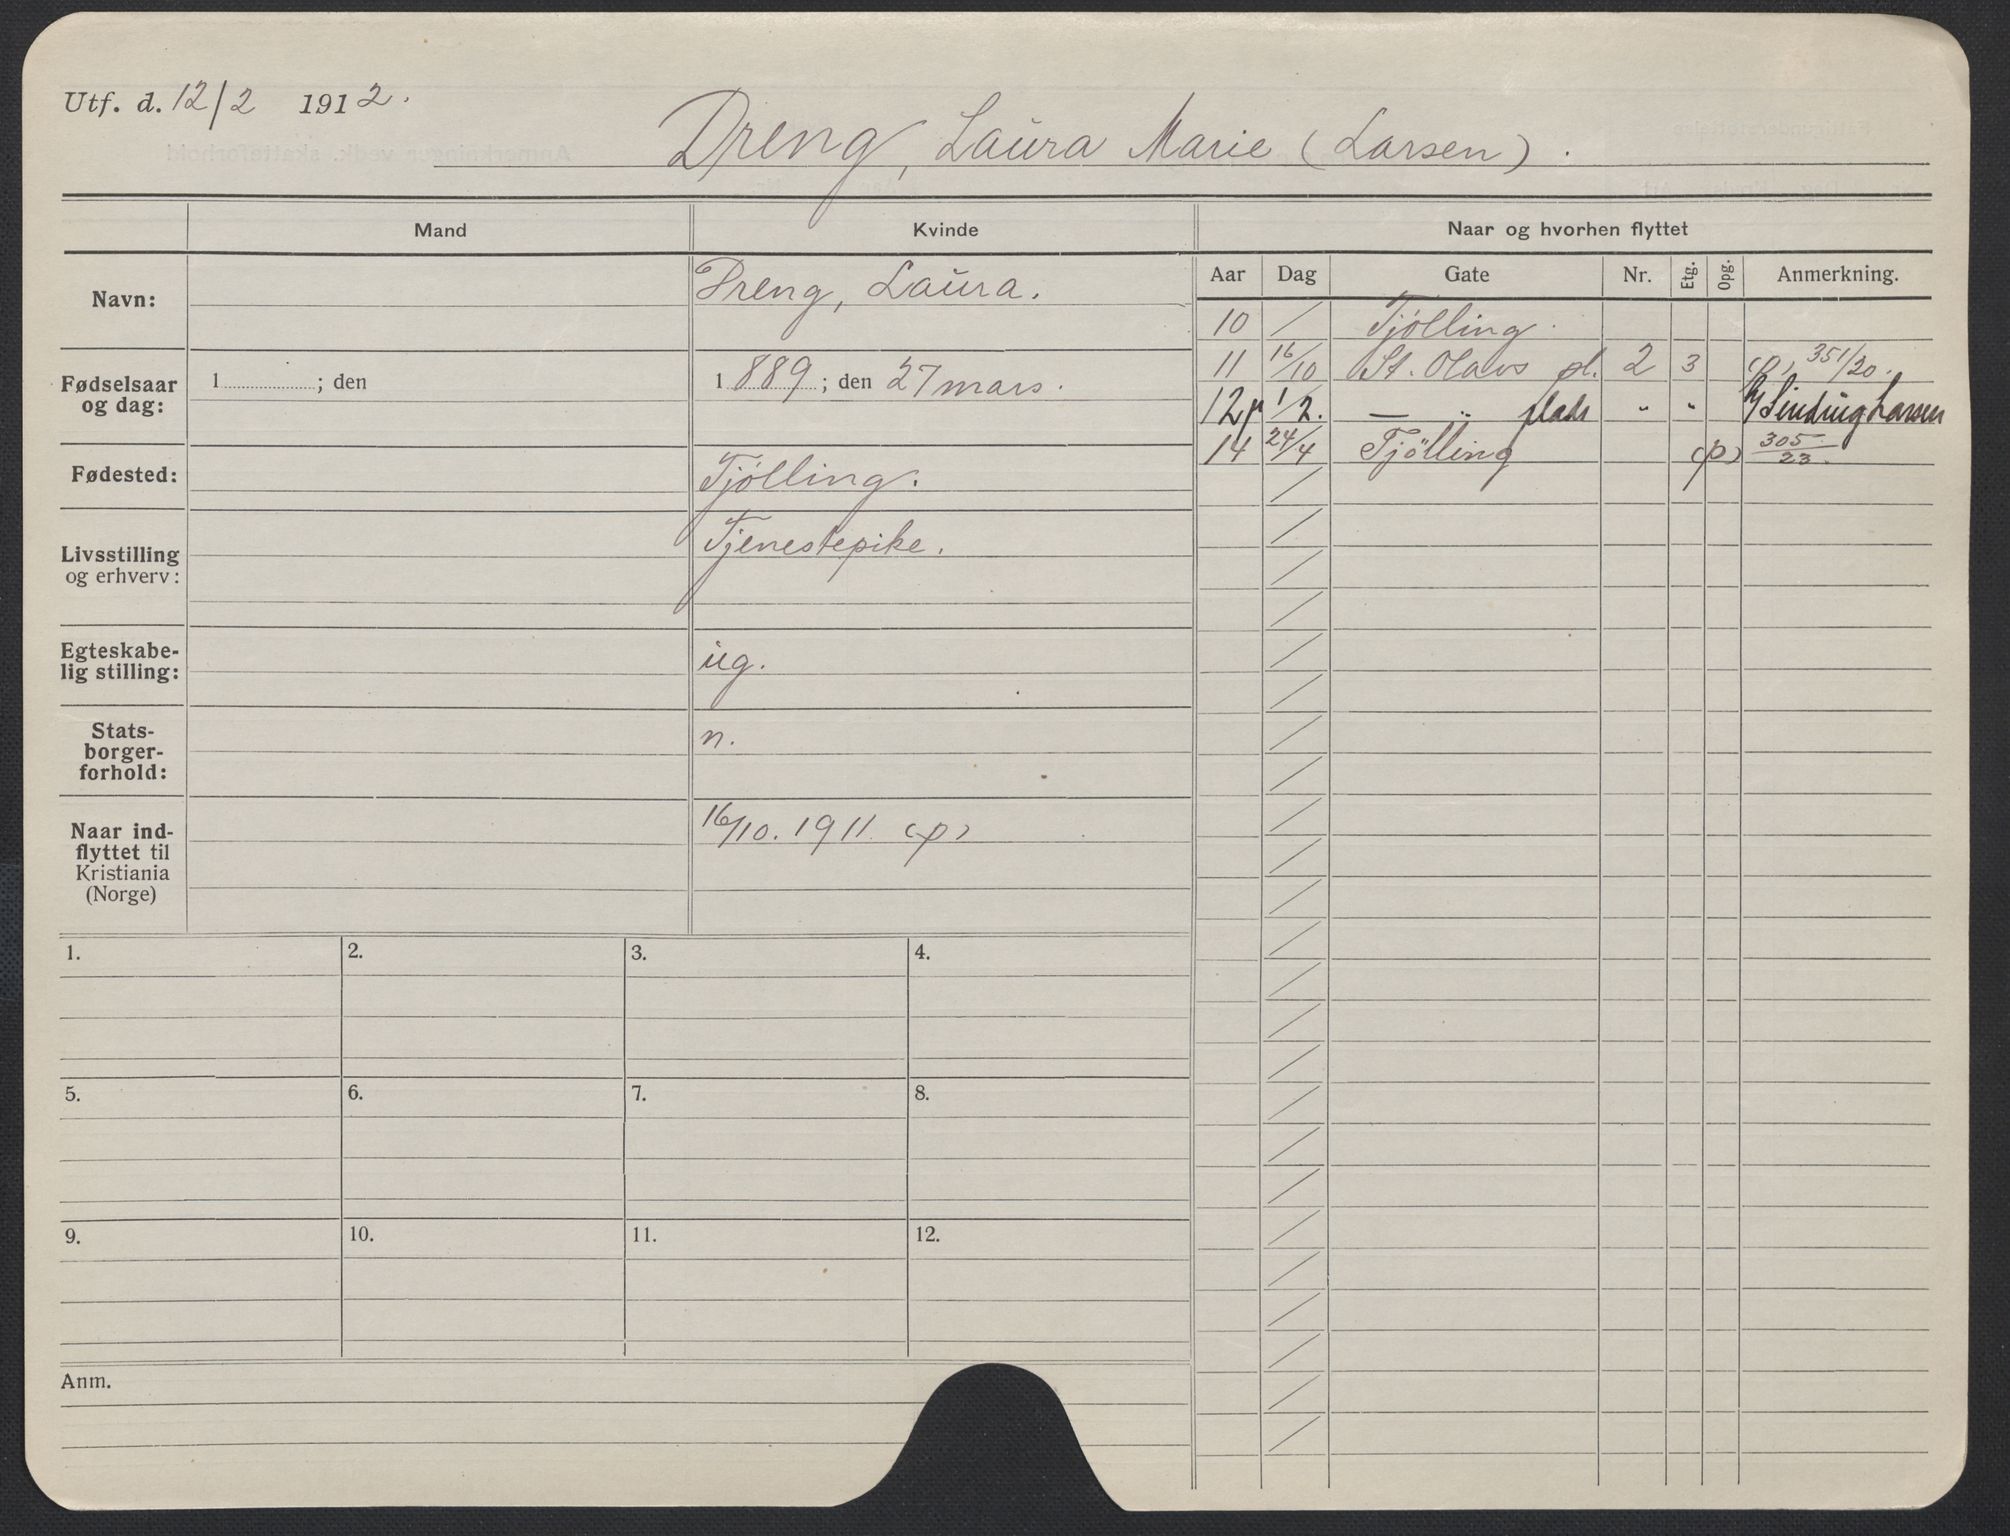 Utf. d. 12/2 1912.
Dreng, Laura Marie (Larsen).
Mand Kvinde Naar og hvorhen flyttet
Aar Dag Gate Nr. Etg. Opg. Anmerkning.
Navn: Dreng, Laura.
Fødselsaar og dag: 1 ; den 1889; den 27 mars.
Fødested: Tjølling.
Livsstilling og erhverv: Tjenestepike.
Egteskabe-
lig stilling: ug.
Stats-
borger-
forhold: n.
Naar ind-
flyttet til
Kristiania
(Norge) 16/10. 1911. (p)
10 / Tjølling.
11 16/10 St. Olavs pl. 2 3 (p) 351/20.
12 1/2. — " plads " " Sinding Larsen
14 24/4 Tjølling (p) 305/23.
1. 2. 3. 4.
5. 6. 7. 8.
9. 10. 11. 12.
Anm.